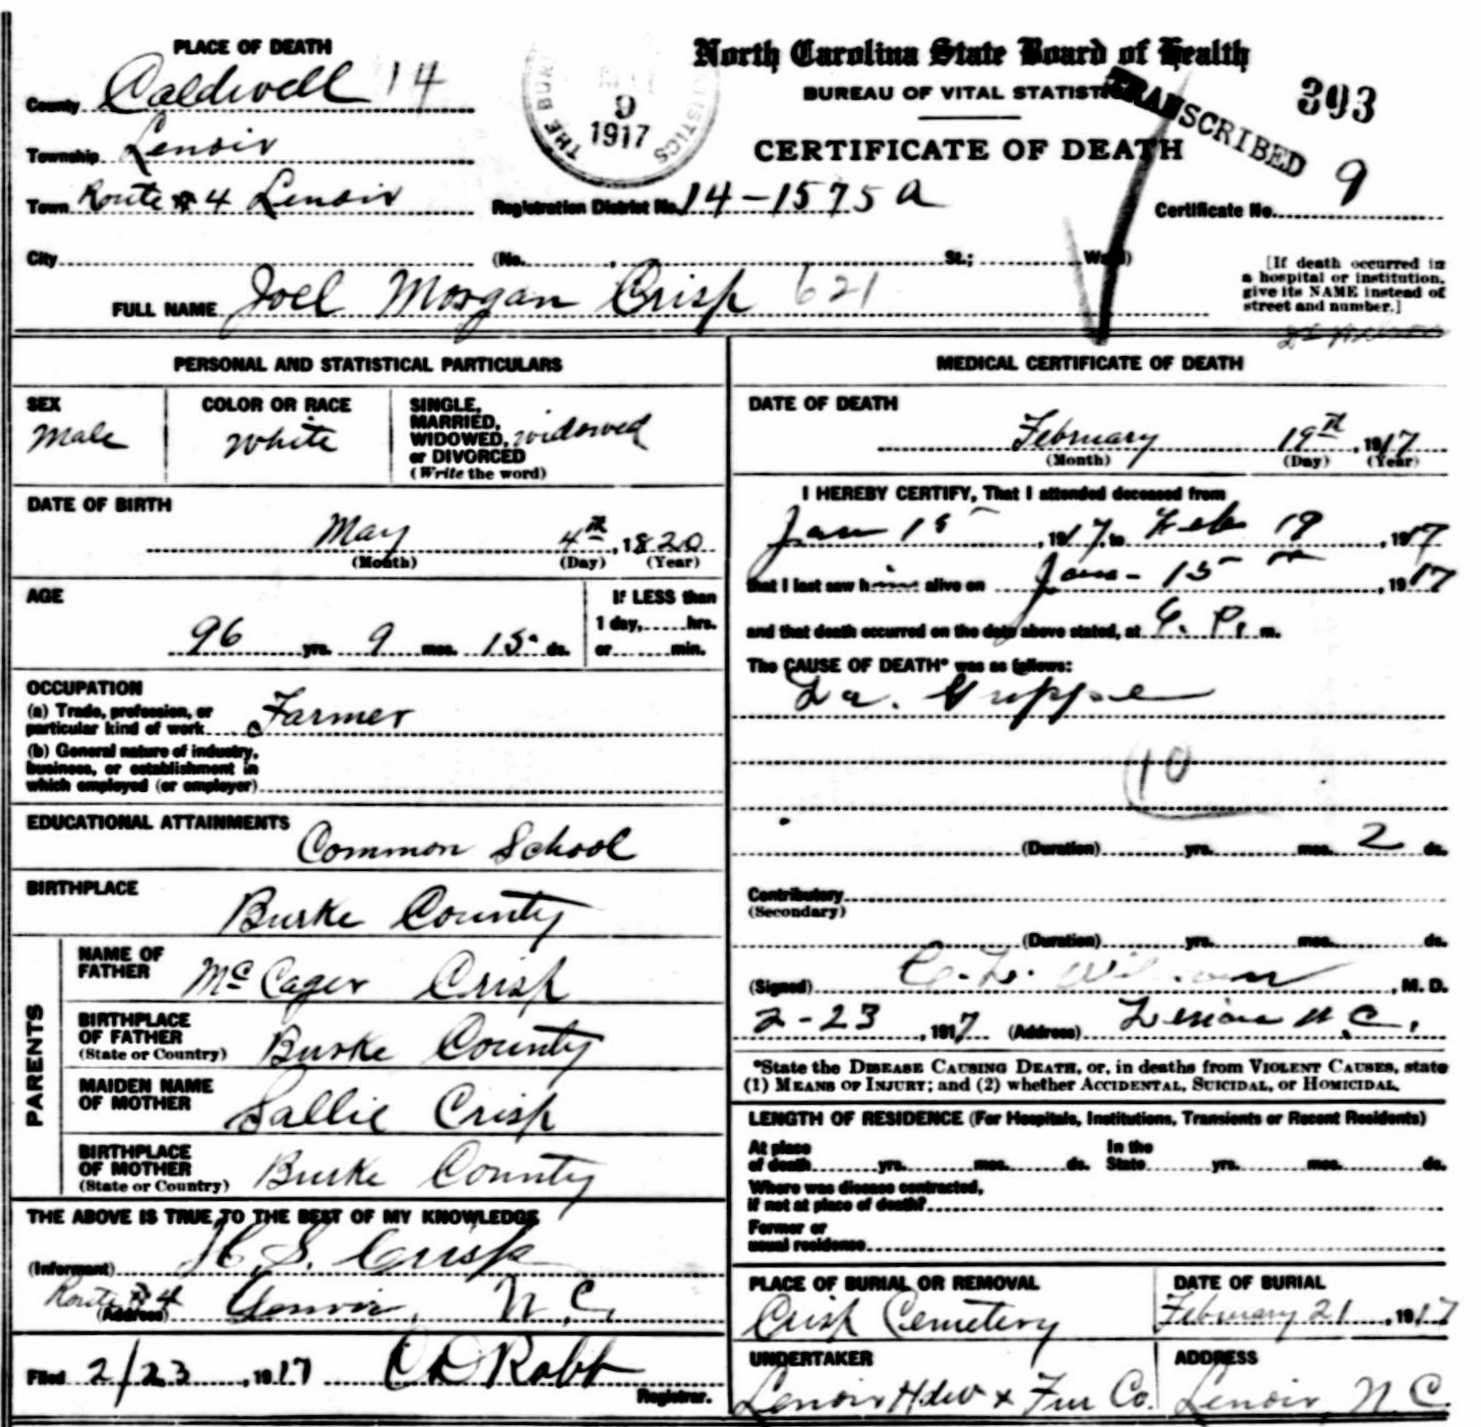 PLACE OF DEATH
County Caldwell 14
Township Lenoir
Town Route #4 Lenoir
City
THE BUR
9
1917
ISTICS
North Carolina State Board of Health
BUREAU OF VITAL STATISTICS
CERTIFICATE OF DEATH
TRANSCRIBED
393
Registration District No. 14-1575 a
Certificate No. 9
(No. , St.; Ward)
[If death occurred in
a hospital or institution,
give its NAME instead of
street and number.]
FULL NAME Joel Morgan Crisp 621
PERSONAL AND STATISTICAL PARTICULARS
SEX
Male
COLOR OR RACE
White
SINGLE,
MARRIED,
WIDOWED, widowed
or DIVORCED
(Write the word)
DATE OF BIRTH
May 4th, 1820
(Month) (Day) (Year)
AGE
96 yrs. 9 mos. 15 ds.
If LESS than
1 day, hrs.
or min.
OCCUPATION
(a) Trade, profession, or
particular kind of work Farmer
(b) General nature of industry,
business, or establishment in
which employed (or employer)
EDUCATIONAL ATTAINMENTS
Common School
BIRTHPLACE
Burke County
PARENTS
NAME OF
FATHER
McCager Crisp
BIRTHPLACE
OF FATHER
(State or Country) Burke County
MAIDEN NAME
OF MOTHER
Sallie Crisp
BIRTHPLACE
OF MOTHER
(State or Country) Burke County
THE ABOVE IS TRUE TO THE BEST OF MY KNOWLEDGE
(Informant) H. S. Crisp
Route #4
(Address) Lenoir, N.C.
Filed 2/23, 1917 C D Rabb
Registrar.
MEDICAL CERTIFICATE OF DEATH
DATE OF DEATH
February 19th, 1917
(Month) (Day) (Year)
I HEREBY CERTIFY, That I attended deceased from
Jan 15, 1917, to Feb 19, 1917
that I last saw him alive on Jan - 15th, 1917
and that death occurred on the date above stated, at P. m.
The CAUSE OF DEATH* was as follows:
La. Grippe
10
(Duration) yrs. mos. 2 ds.
Contributory
(Secondary)
(Duration) yrs. mos. ds.
(Signed) Wilson, M. D.
2-23, 1917 (Address) Lenoir N.C.
*State the DISEASE CAUSING DEATH, or, in deaths from VIOLENT CAUSES, state
(1) MEANS OF INJURY; and (2) whether ACCIDENTAL, SUICIDAL, or HOMICIDAL.
LENGTH OF RESIDENCE (For Hospitals, Institutions, Transients or Recent Residents)
At place
of death yrs. mos. ds.
In the
State yrs. mos. ds.
Where was disease contracted,
If not at place of death?
Former or
usual residence
PLACE OF BURIAL OR REMOVAL
Crisp Cemetery
DATE OF BURIAL
February 21, 1917
UNDERTAKER
Lenoir Hdw & Fur Co.
ADDRESS
Lenoir, N C.